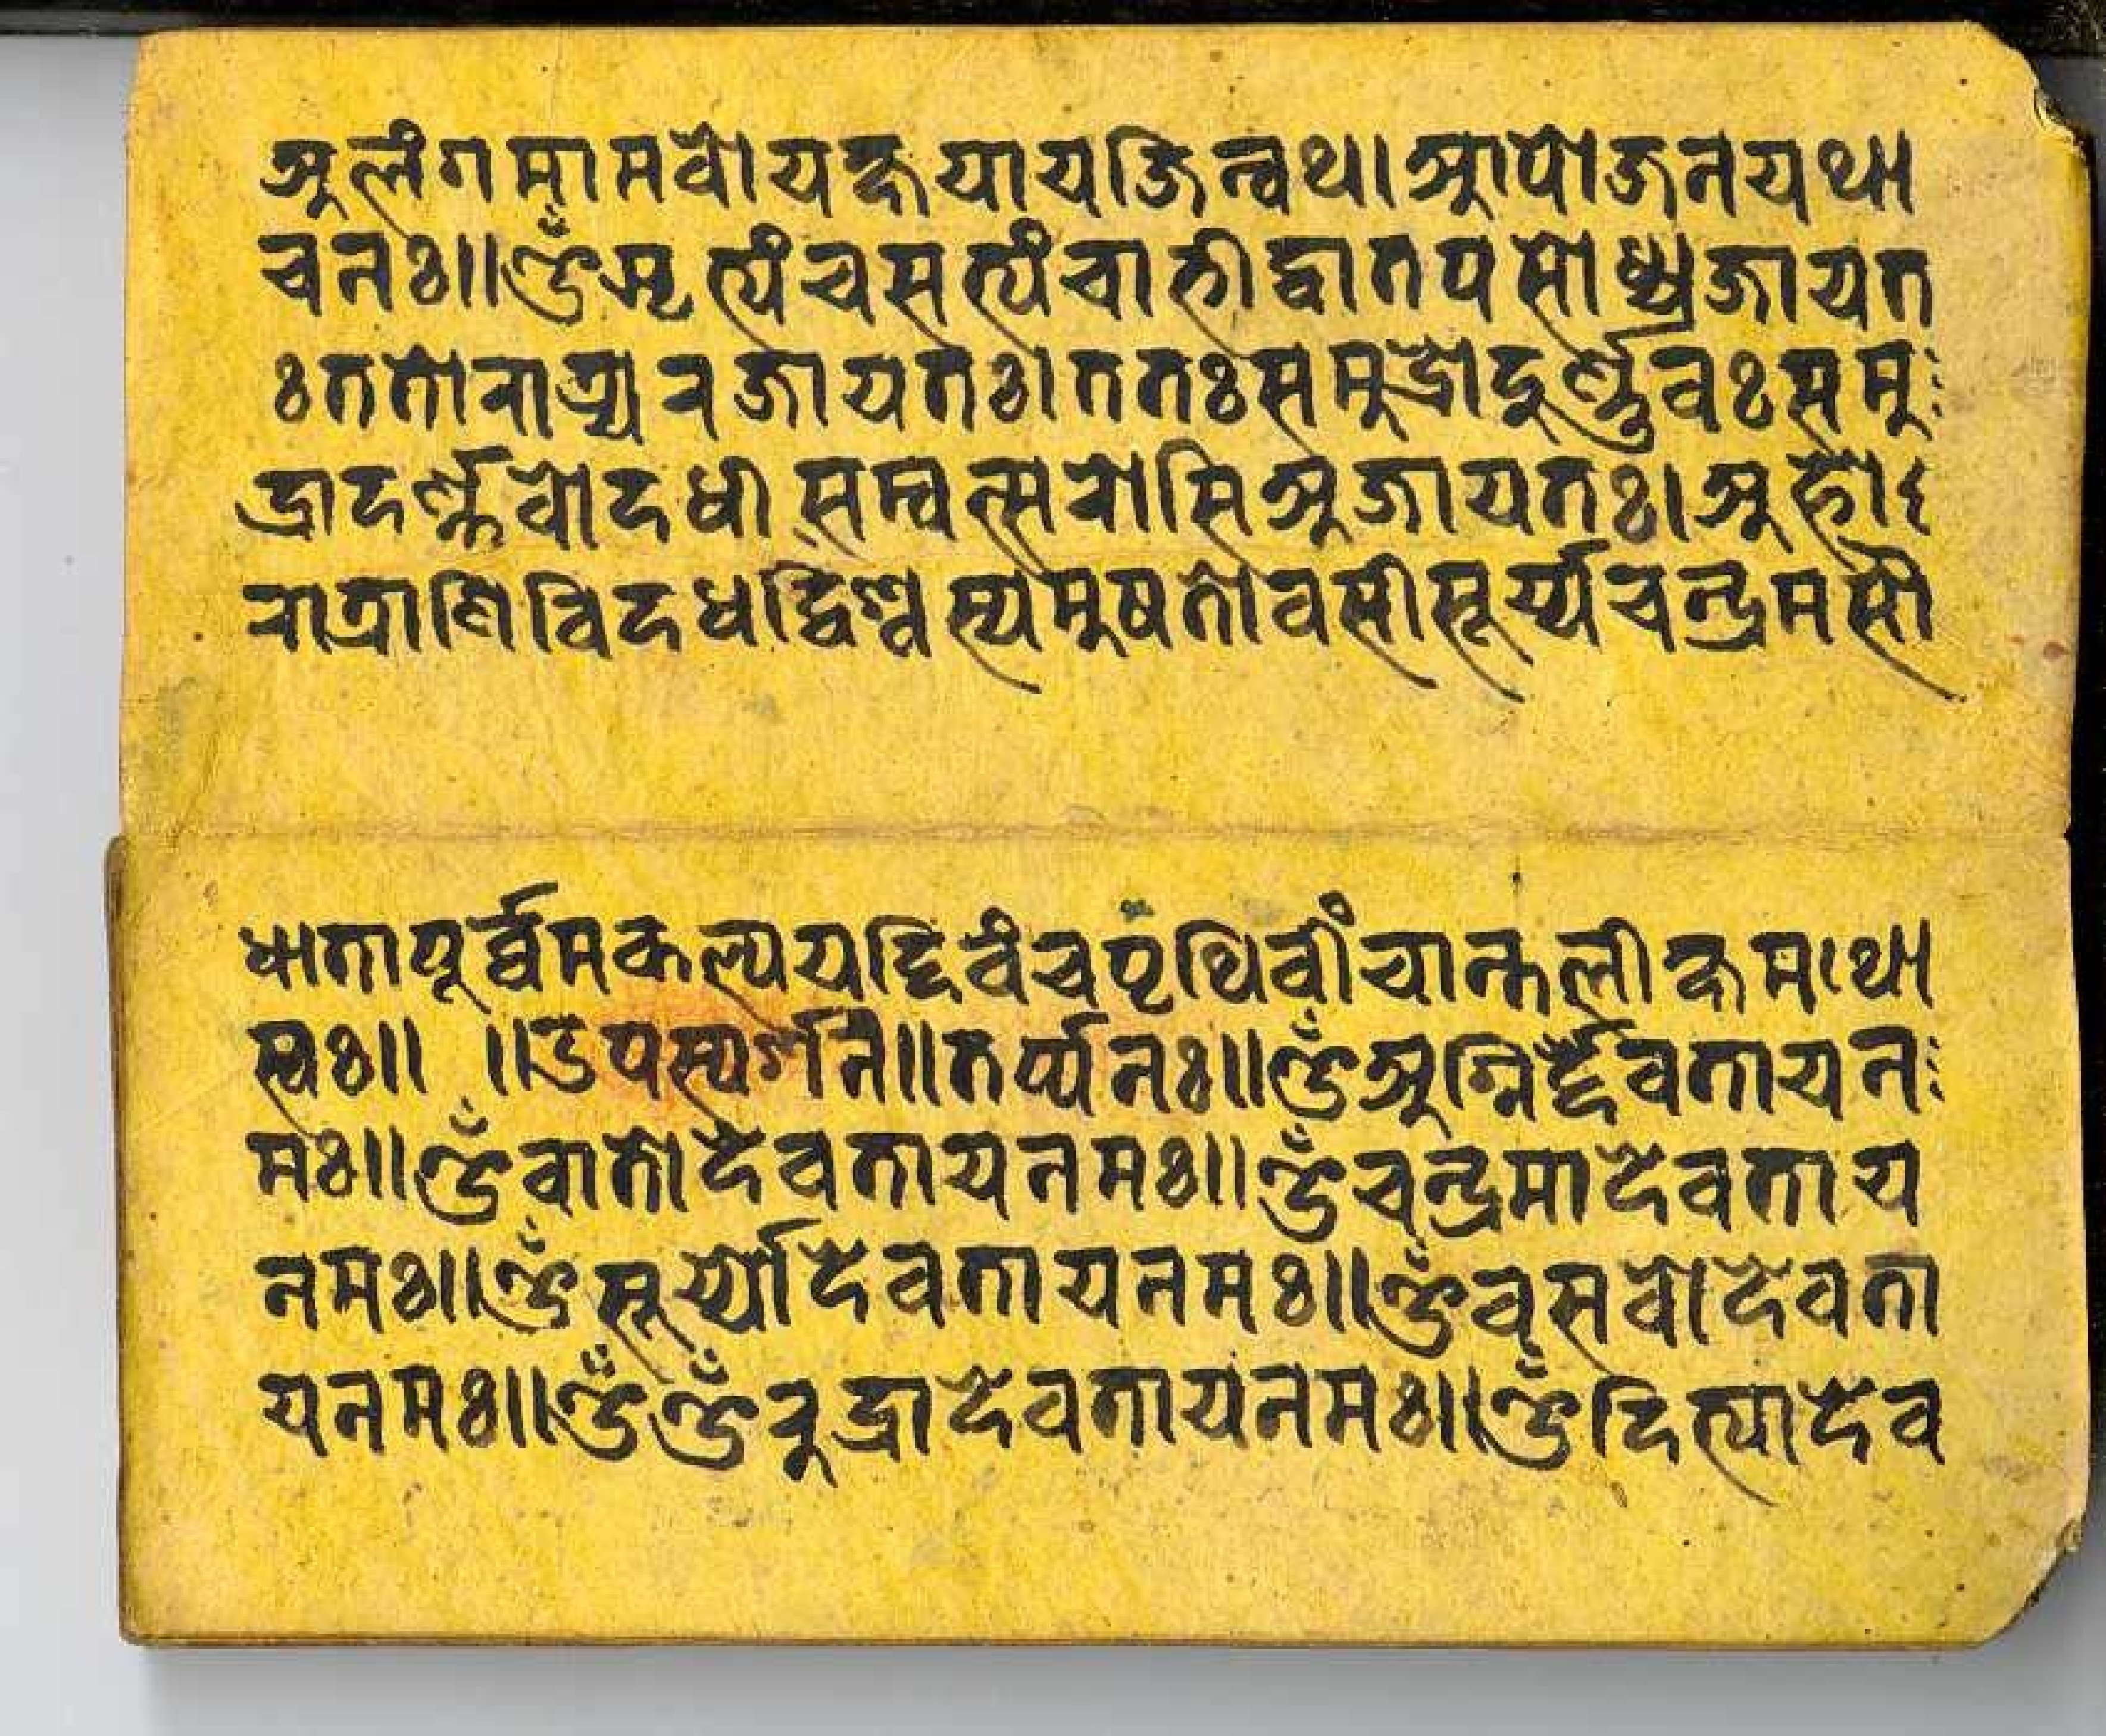 अलंगमामवोयक्षयायजिन्वथ।आपोजनयथा
चनः॥ॐऋत्यंचसत्यंचाभीद्धातपसोध्यजायत
ःततोरात्र्यरजायतः।ततःसमुद्रोदुर्ण्णवःसमु
द्रादर्ण्णवोदधीसम्वत्सरोसिअजायतः।अहो
रात्राणिविदधद्विश्वस्यमुषतोवसीसूर्य्यचन्द्रमसौ
धातापूर्व्वमकल्पयद्दिवंचपृथिवींचान्तलीक्षमथो
स्वः॥ ॥उपस्पर्शनं॥तर्प्पनः॥ॐअग्निर्द्देवतायन
मः॥ॐवातोदेवतायनमः॥ॐचन्द्रमादेवताय
नमः॥ॐसूर्य्योदेवतायनमः॥ॐवसवोदेवता
यनमः॥ॐॐरुद्रादेवतायनमः॥ॐदित्यादेव